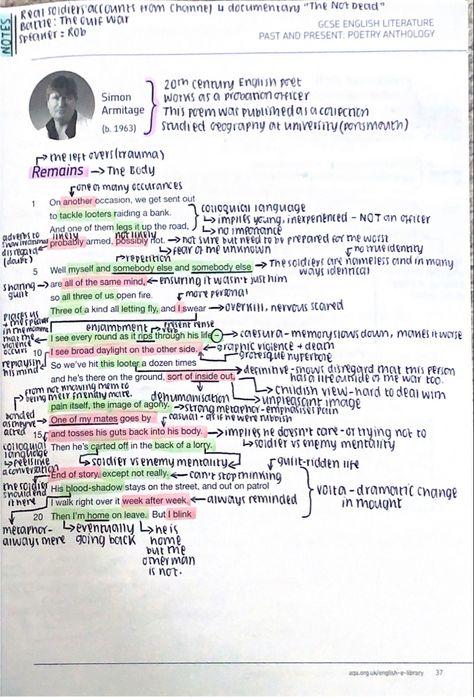 NOTES
Real soldiers' accounts from Channel 4 documentary "The Not Dead"
Battle: The Gulf War
Speaker = Rob
GCSE ENGLISH LITERATURE
PAST AND PRESENT: POETRY ANTHOLOGY
Simon
Armitage
(b. 1963)
20th century English poet
Works as a probation officer
This poem was published as a collection
studied geography at university (portsmouth)
the left overs (trauma)
Remains → The Body
one of many occurances
1 On another occasion, we get sent out
to tackle looters raiding a bank.
And one of them legs it up the road,
colloquial language
→ implies young, inexperienced - NOT an officer
→ no importance
adverbs to show
disregard
(doubt)
likely
not likely
probably armed, possibly not.
→ not sure but need to be prepared for the worst
→ fear of the unknown
no true identity
repetition
5 Well myself and somebody else and somebody else
→ The soldiers are nameless and in many
ways identical
sharing
guilt
are all of the same mind,
← ensuring it wasn't just him
so all three of us open fire.
more personal
Three of a kind all letting fly, and I swear
→ overkill, nervous scared
places us
the speaker
in
the
violence
occurs
enjambment
present tense
I see every round as it rips through his life –
→ caesura - memory slows down, makes it worse
10 I see broad daylight on the other side.
→ graphic violence + death
grotesque hyperbole
replaying
his mind
So we've hit this looter a dozen times
and he's there on the ground, sort of inside out,
→ definitive - shows disregard that this person
has a life outside of the war too.
→ childish view - hard to deal with
unpleasant image
from not knowing them to
being their friend/mate
dehumanisation
pain itself, the image of agony.
→ strong metaphor - emphasises pain
bonded
as they've
acted
One of my mates goes by
casual - as if he were rubbish
15 and tosses his guts back into his body.
→ implies he doesn't care - or trying not to
Then he's carted off in the back of a lorry.
→ soldier vs enemy mentality
colloquial
language
→ feels like
a conversation
→ soldier vs enemy mentality
guilt-ridden life
End of story, except not really.
← can't stop thinking
the soldier
should end
it here
His blood-shadow stays on the street, and out on patrol
I walk right over it week after week.
← always remembered
volta - dramatic change
in thought
20 Then I'm home on leave. But I blink
metaphor -
always there
→ eventually
going back
→ he is
home
but the
other man
is not.
aqa.org.uk/english-e-library
37